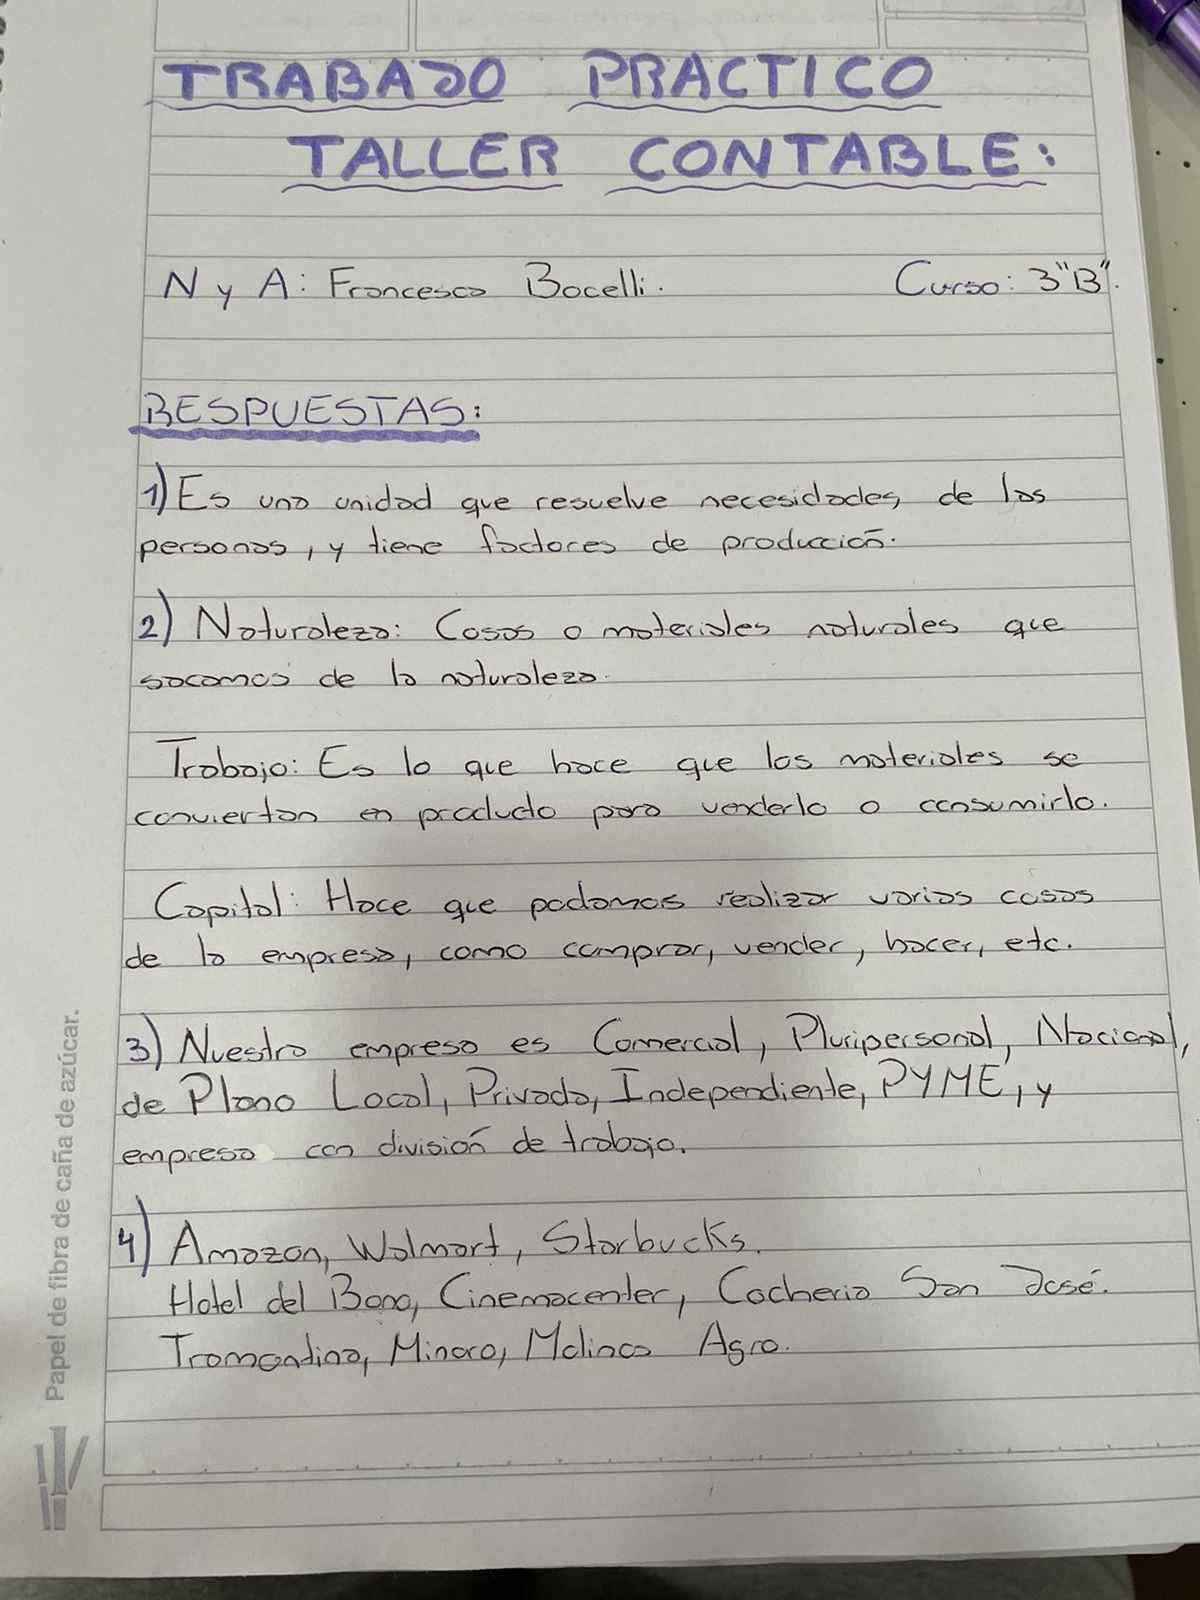 TRABAJO PRACTICO
TALLER CONTABLE:
N y A: Francesco Bocelli. Curso: 3"B".
RESPUESTAS:
1) Es una unidad que resuelve necesidades, de las
personas, y tiene factores de producción.
2) Naturaleza: Cosas o materiales naturales que
sacamos de la naturaleza.
Trabajo: Es lo que hace que los materiales se
conviertan en producto para venderlo o consumirlo.
Capital: Hace que podamos realizar varias cosas
de la empresa, como comprar, vender, hacer, etc.
3) Nuestra empresa es Comercial, Pluripersonal, Nacional,
de Plano Local, Privada, Independiente, PYME, y
empresa con división de trabajo.
4) Amazon, Walmart, Starbucks.
Hotel del Bono, Cinemacenter, Cocheria San José.
Tramontina, Minara, Molinos Agro.
Papel de fibra de caña de azúcar.